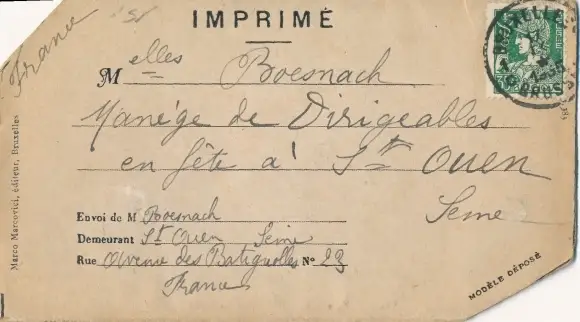 IMPRIMÉ
France
Melles Boesnach
Manége de Dirigeables
en fête a' St Ouen
Seine
Envoi de M Boesnach
Demeurant St Ouen Seine
Rue Avenue des Batignolles No 23
France
Marco Marcovici, éditeur, Bruxelles
MODÈLE DÉPOSÉ